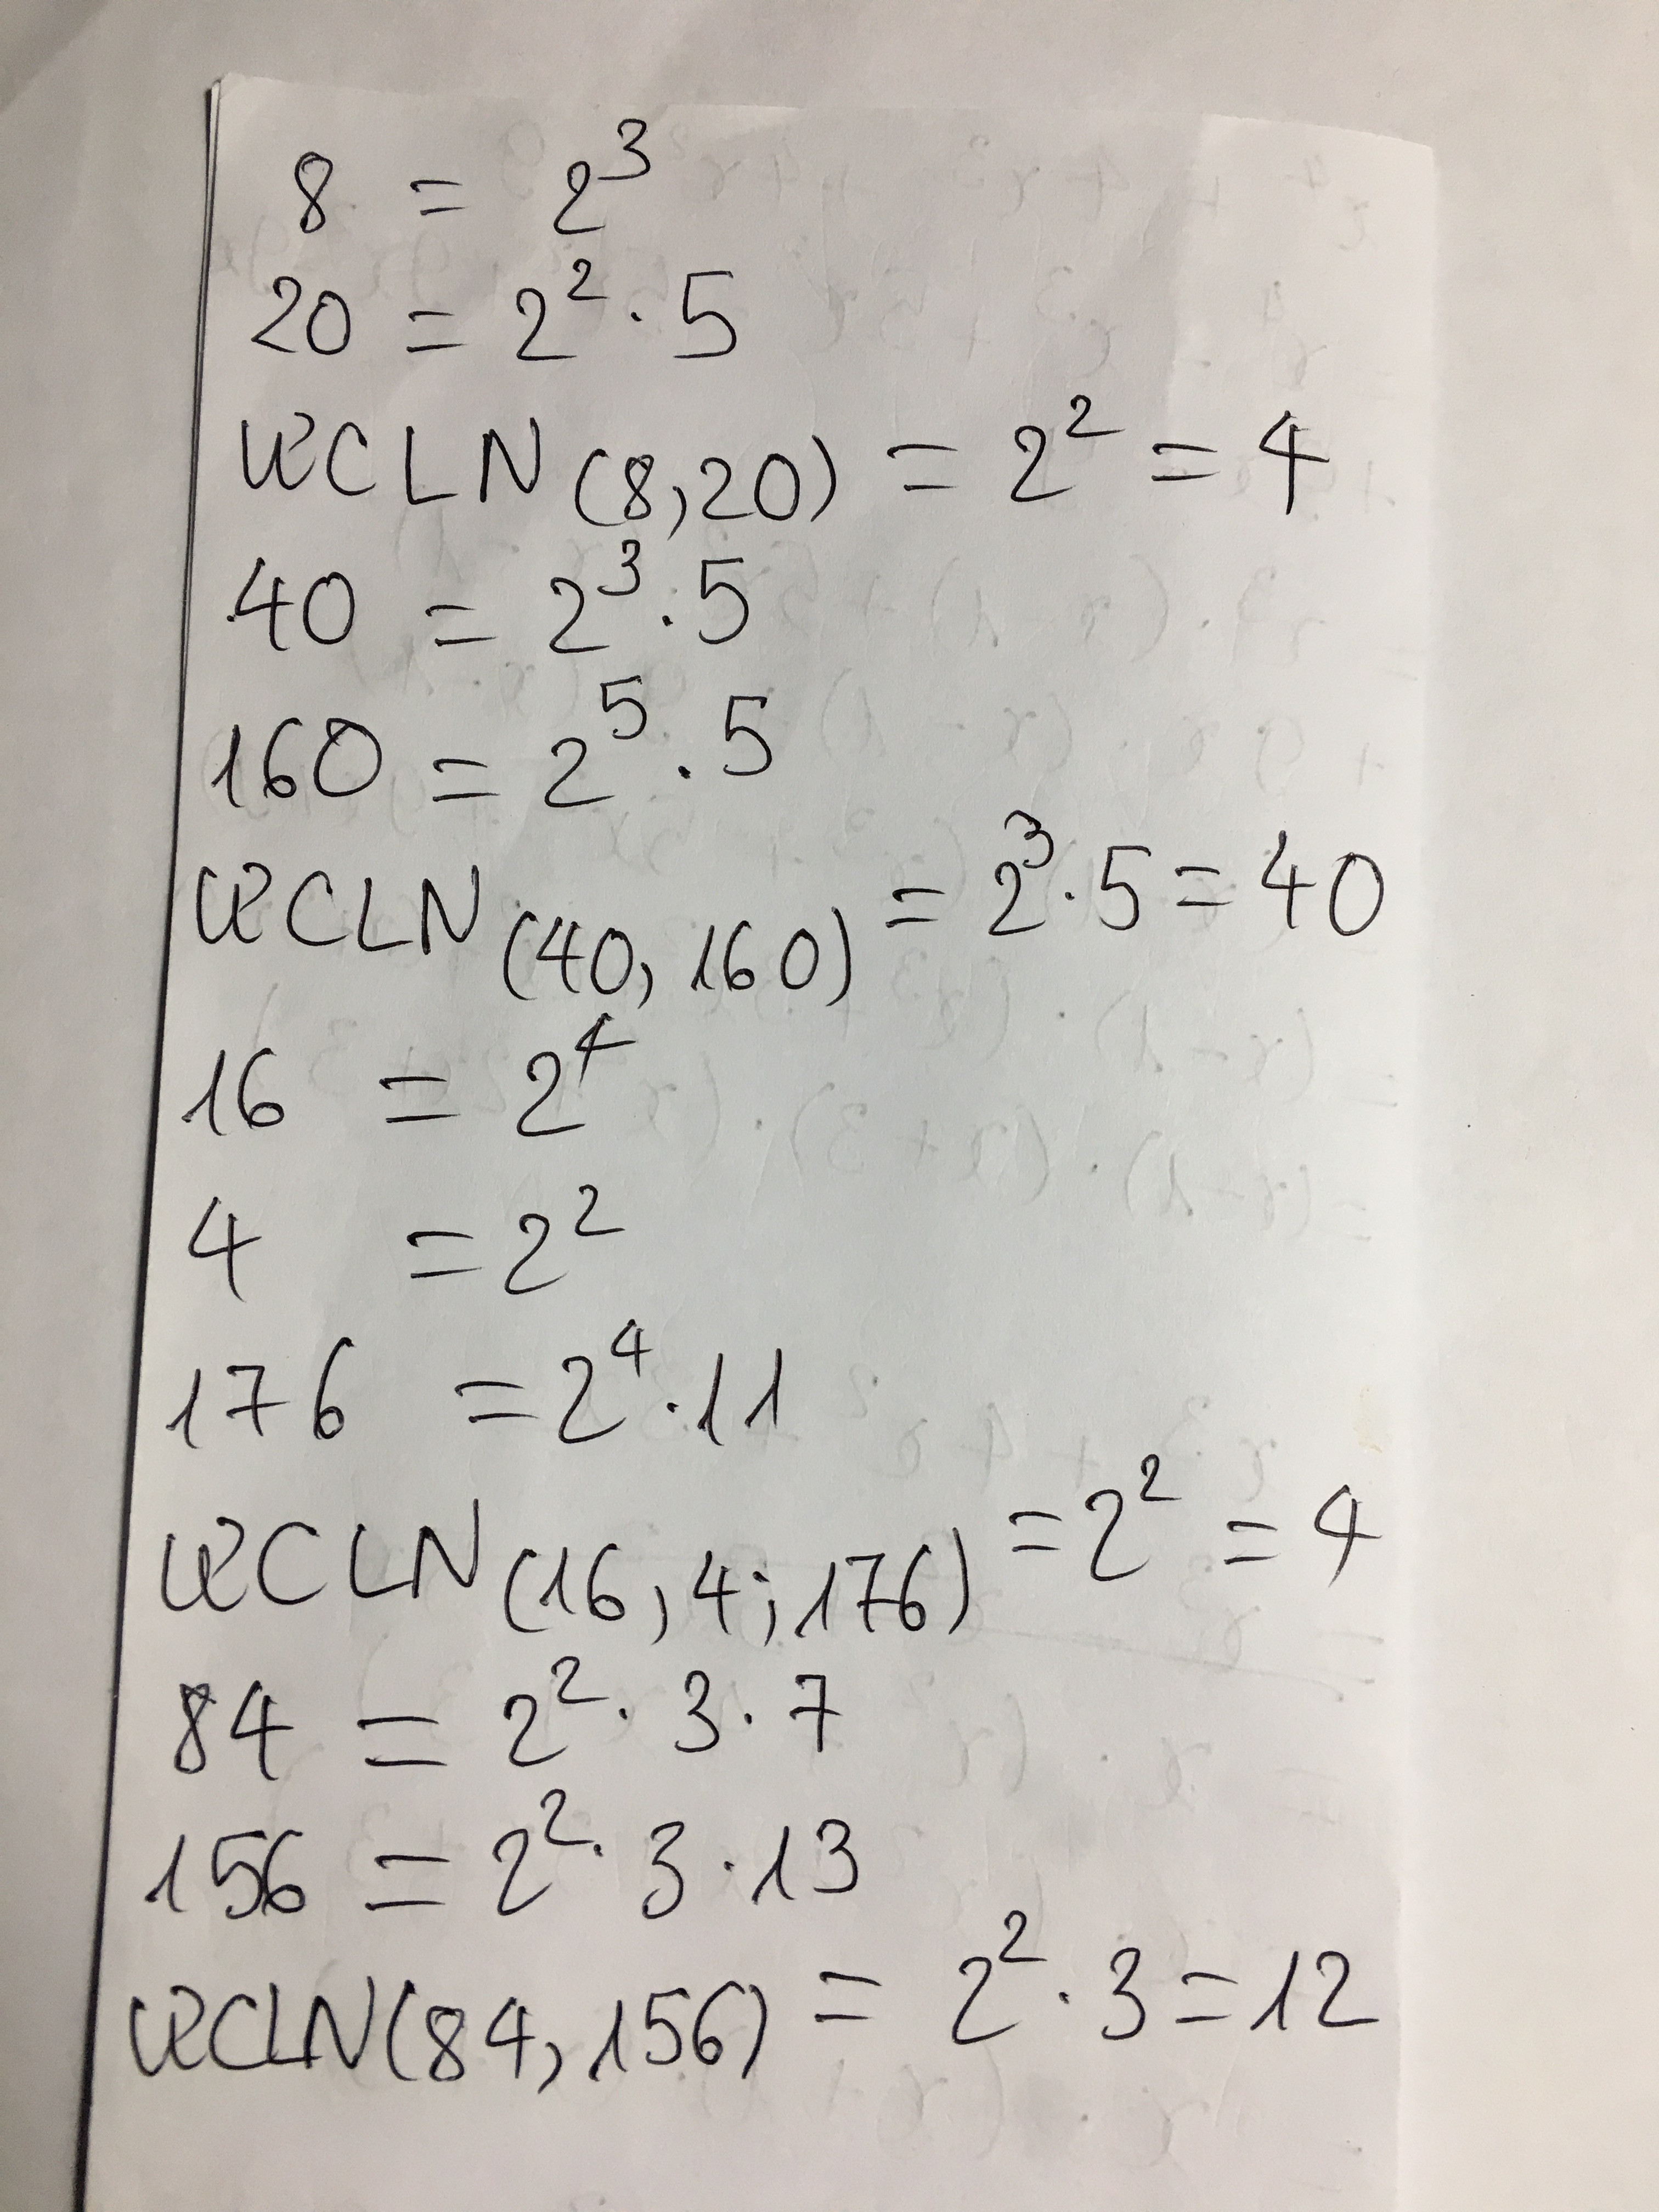 8 = 2³
20 = 2² · 5
ƯCLN (8,20) = 2² = 4
40 = 2³ · 5
160 = 2⁵ · 5
ƯCLN (40, 160) = 2³ · 5 = 40
16 = 2⁴
4 = 2²
176 = 2⁴ · 11
ƯCLN (16, 4; 176) = 2² = 4
84 = 2² · 3 · 7
156 = 2² · 3 · 13
ƯCLN(84, 156) = 2² · 3 = 12